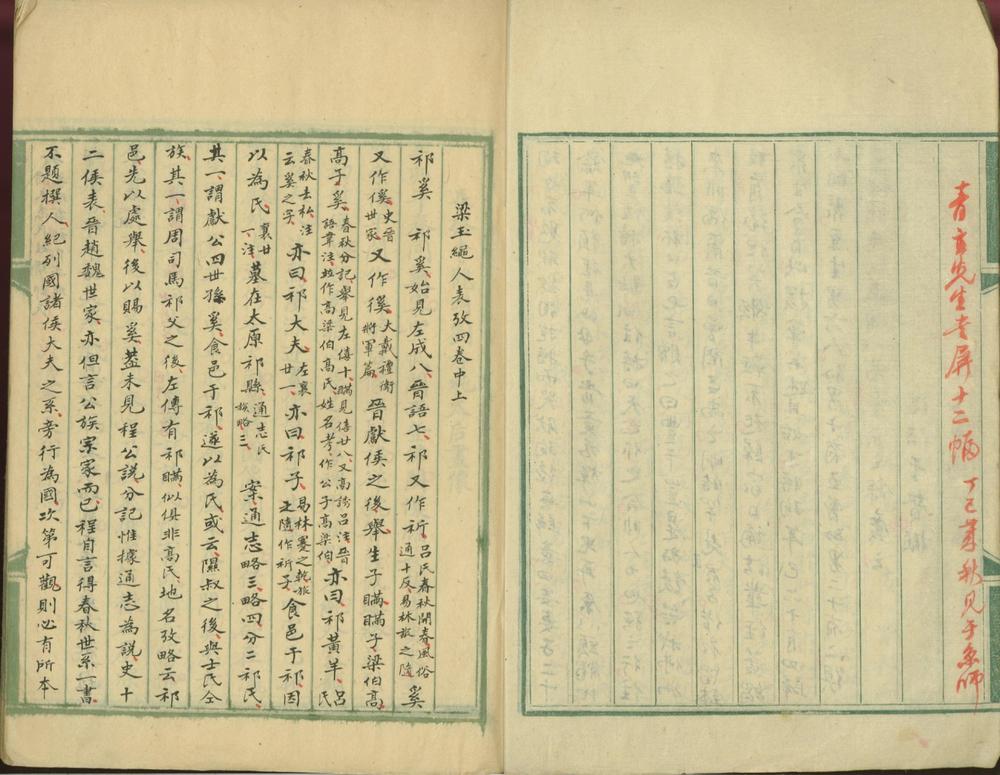 青主先生書屏十二幀 丁巳舊秋見于京師
梁玉繩人表攷四卷中上
祁奚 祁奚始見左成八晉語七祁又作祈呂氏春秋開春風俗通十反易林旅之隨奚
又作傒史晉世家又作徯大戴禮衛將軍篇晉獻侯之後舉生子瞞瞞子梁伯高
高子奚春秋分記舉見左僖十瞞見僖廿八又高誘呂注晉語韋注並作高梁伯高氏姓名考作公子高梁伯亦曰祁黃羊呂氏
春秋去私注云奚之字亦曰祁大夫左襄廿一亦曰祁子易林蹇之乾旅之隨作祈子食邑于祁因
以為氏襄廿一注墓在太原祁縣通志氏族略三案通志略三略四分二祁氏
其一謂獻公四世孫奚食邑于祁遂以為氏或云隰叔之後與士氏仝
族其一謂周司馬祁父之後左傳有祁瞞似俱非高氏地名攷略云祁
邑先以處舉後以賜奚葢未見程公說分記惟據通志為說史十
二侯表晉趙魏世家亦但言公族宗家而已程自言得春秋世系一書
不題撰人紀列國諸侯大夫之系旁行為國次第可觀則必有所本